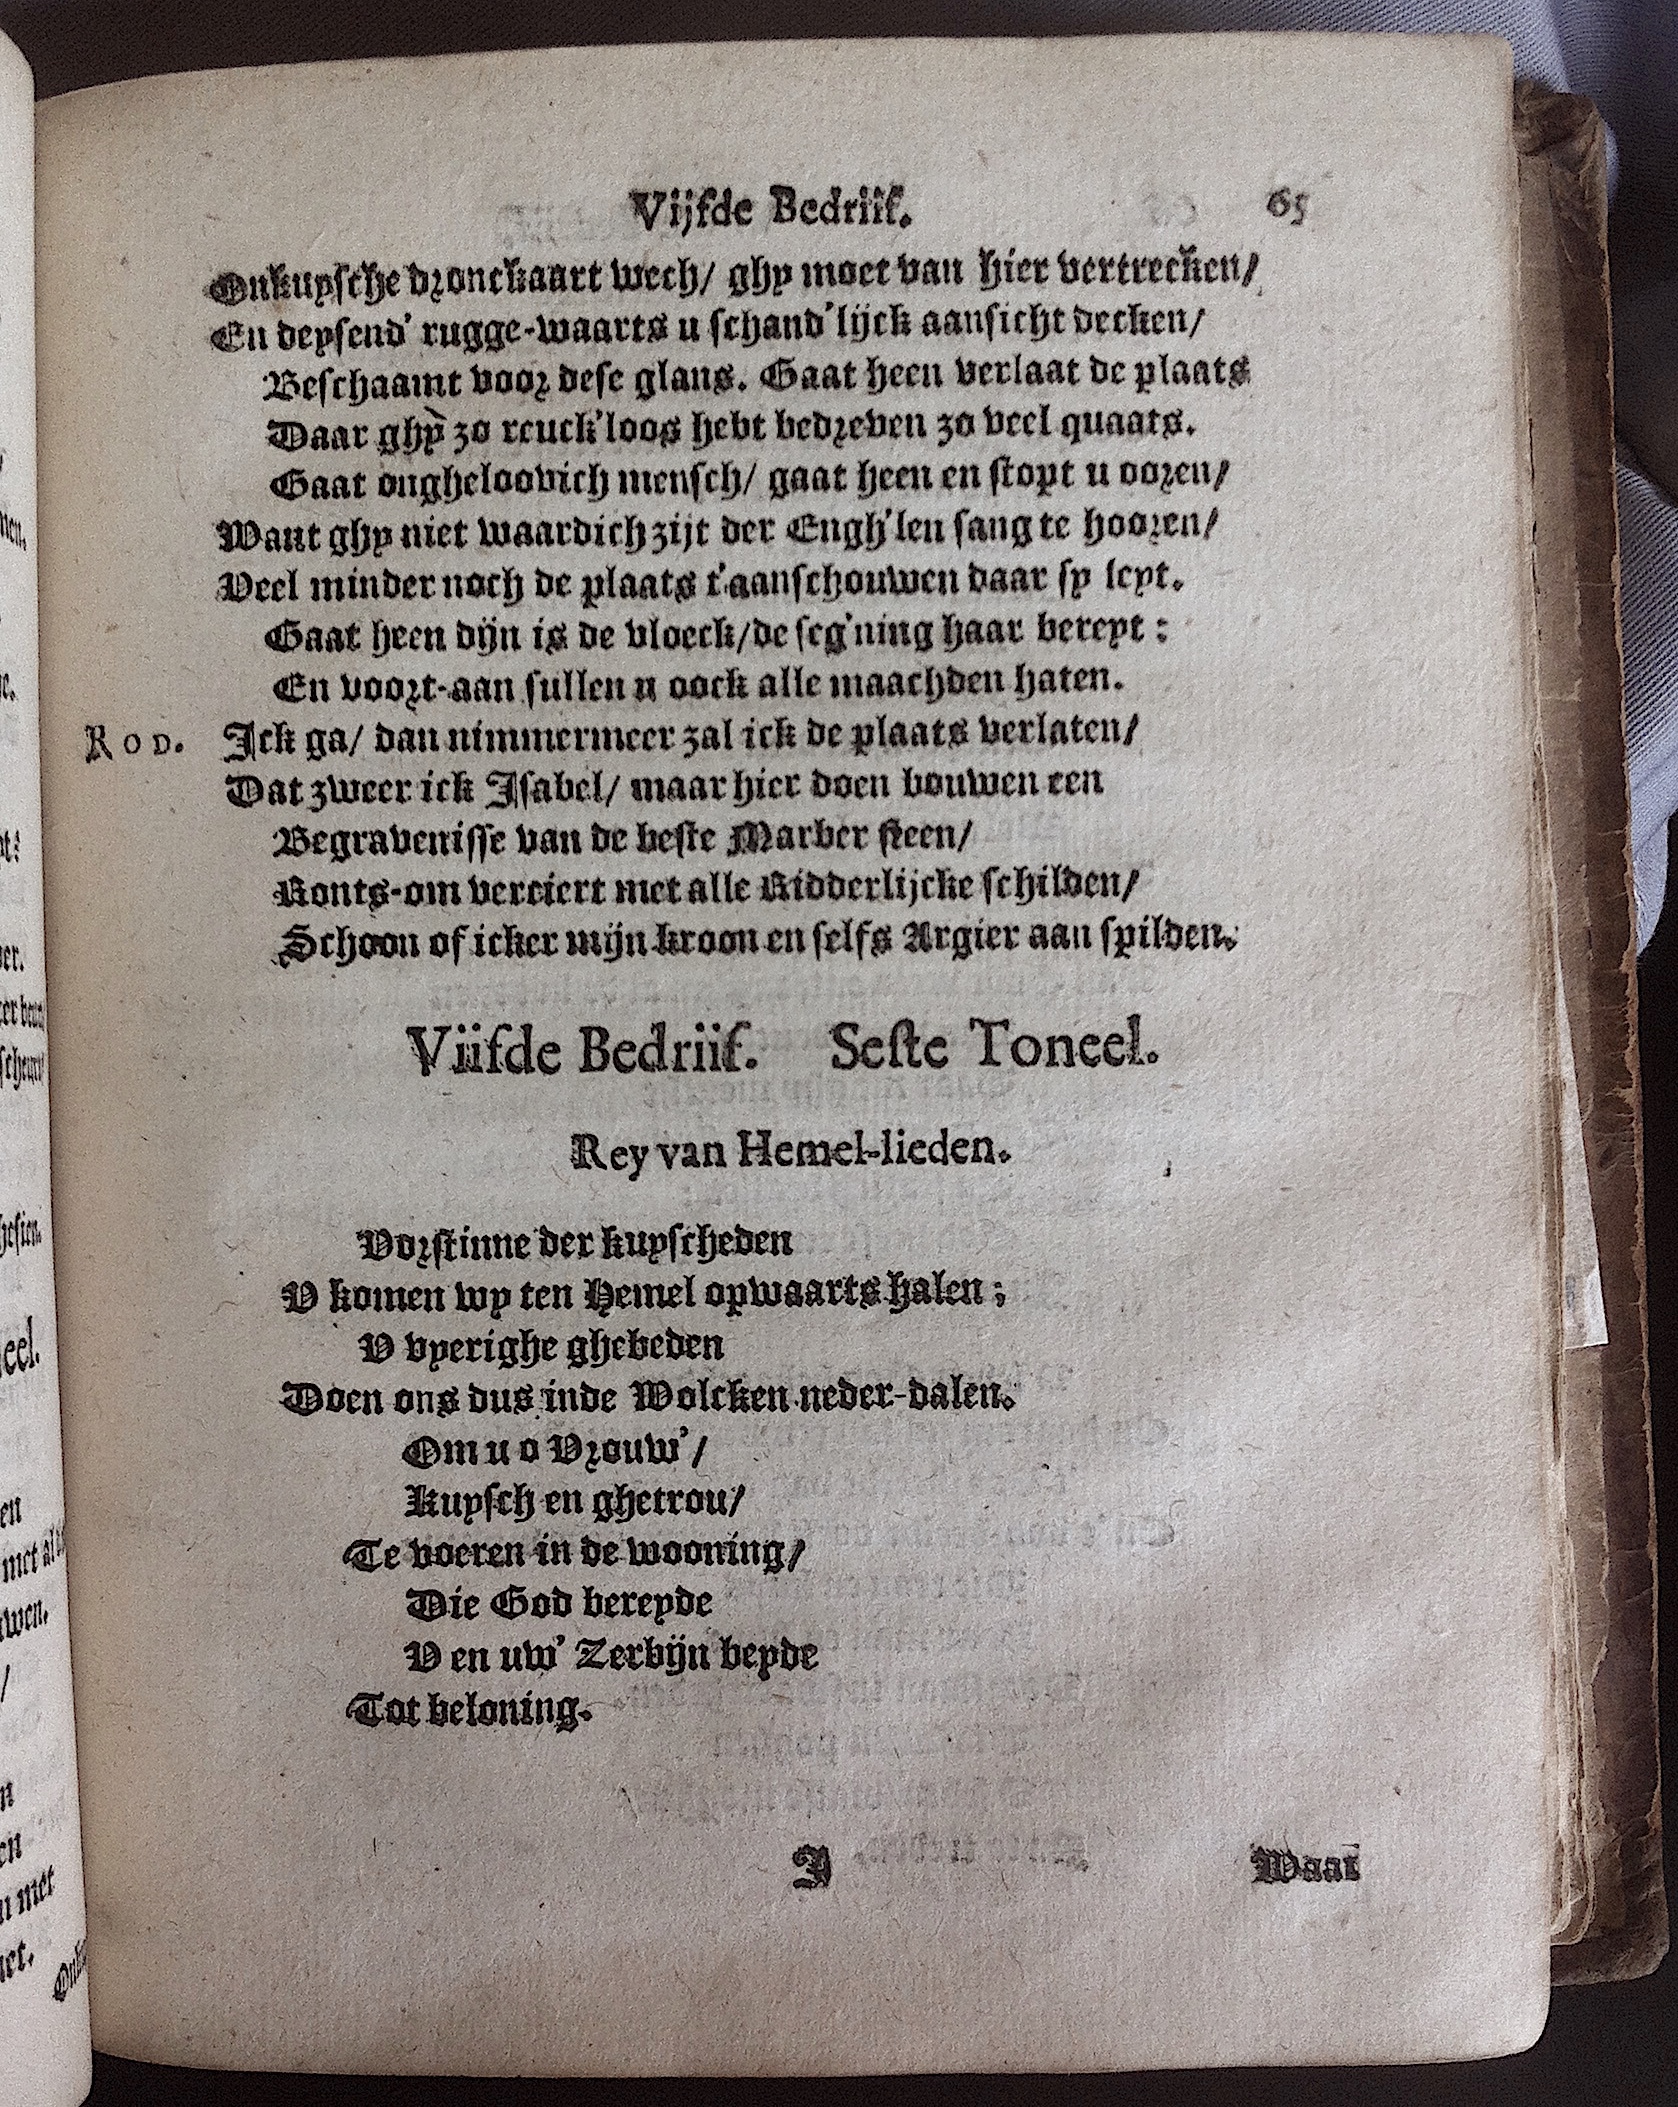 Vijfde Bedriif. 65
Onkuysche dronckaart wech/ ghy moet van hier vertrecken/
En deysend' rugge-waarts u schand'lijck aansicht decken/
Beschaamt voor dese glans. Gaat heen verlaat de plaats
Daar ghy zo reuck'loos hebt bedreven zo veel quaats.
Gaat ongheloovich mensch/ gaat heen en stopt u ooren/
Want ghy niet waardich zijt der Engh'len sang te hooren/
Veel minder noch de plaats t'aanschouwen daar sy leyt.
Gaat heen dijn is de vloeck/de seg'ning haar bereyt:
En voort-aan sullen u oock alle maachden haten.
Rod. Ick ga/ dan nimmermeer zal ick de plaats verlaten/
Dat zweer ick Isabel/ maar hier doen bouwen een
Begravenisse van de beste Marber steen/
Ronts-om verciert met alle Ridderlijcke schilden/
Schoon of icker mijn kroon en selfs Argier aan spilden.
Viifde Bedriif. Seste Toneel.
Rey van Hemel-lieden.
Vorstinne der kuyscheden
V komen wy ten Hemel opwaarts halen;
V vyerighe ghebeden
Doen ons dus inde Wolcken neder-dalen.
Om u o Vrouw'/
Kuysch en ghetrou/
Te voeren in de wooning/
Die God bereyde
V en uw' Zerbijn beyde
Tot beloning.
I Waar